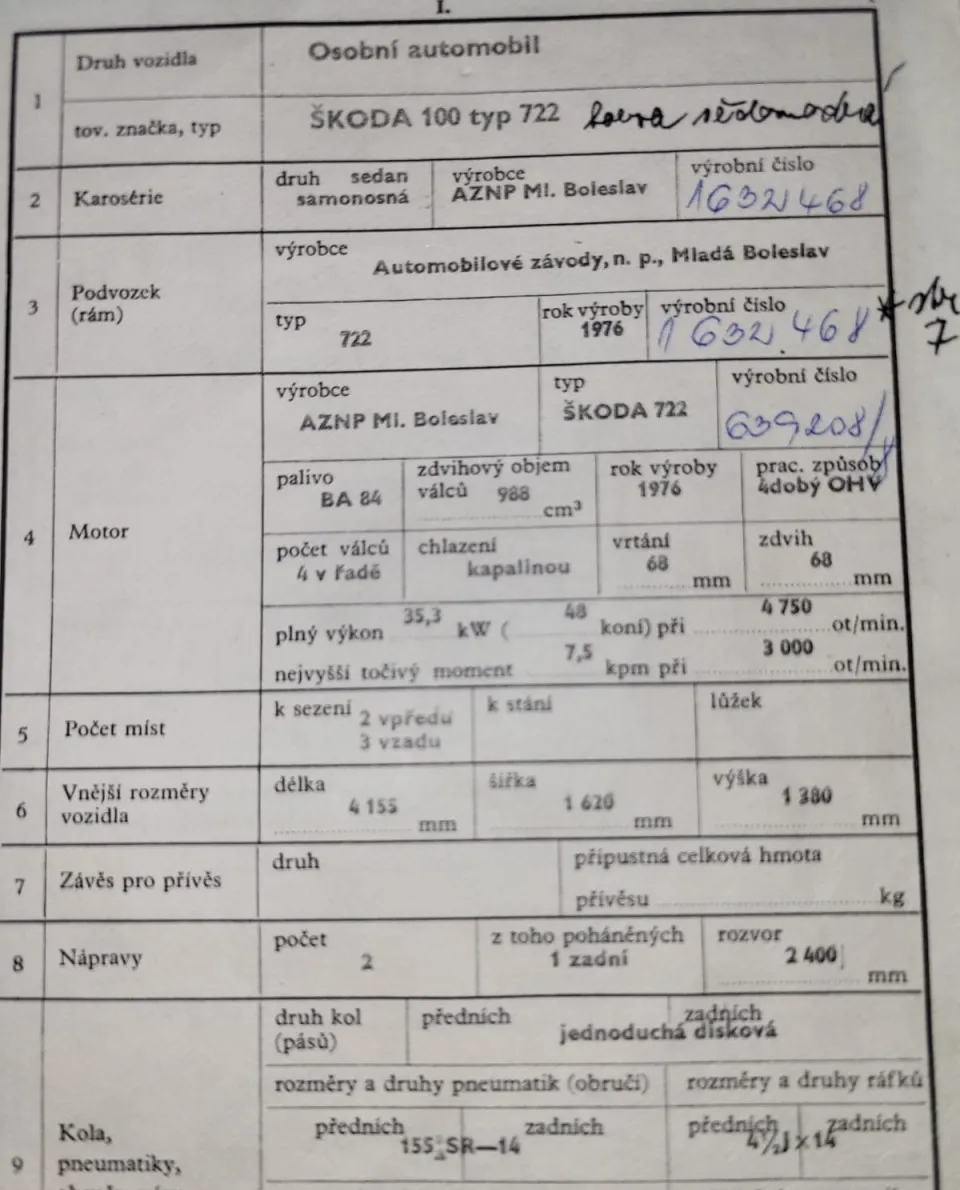 I.
1 Druh vozidla Osobní automobil
tov. značka, typ ŠKODA 100 typ 722 barva šědomodrá
2 Karosérie druh sedan samonosná výrobce AZNP Ml. Boleslav výrobní číslo 1632468
3 Podvozek (rám) výrobce Automobilové závody, n. p., Mladá Boleslav
typ 722 rok výroby 1976 výrobní číslo 1632.468
7
4 Motor výrobce AZNP Ml. Boleslav typ ŠKODA 722 výrobní číslo 639208/
palivo BA 84 zdvihový objem válců 988 cm³ rok výroby 1976 prac. způsob 4dobý OHV
počet válců 4 v řadě chlazení kapalinou vrtání 68 mm zdvih 68 mm
plný výkon 35,3 kW ( 48 koní) při 4 750 ot/min.
nejvyšší točivý moment 7,5 kpm při 3 000 ot/min.
5 Počet míst k sezení 2 vpředu 3 vzadu k stání lůžek
6 Vnější rozměry vozidla délka 4 155 mm šířka 1 620 mm výška 1 380 mm
7 Závěs pro přívěs druh přípustná celková hmota přívěsu kg
8 Nápravy počet 2 z toho poháněných 1 zadní rozvor 2 400 mm
9 Kola, pneumatiky, druh kol (pásů) předních zadních jednoduchá disková
rozměry a druhy pneumatik (obručí) rozměry a druhy ráfků
předních zadních 155 SR—14 předních zadních 4½J x 14